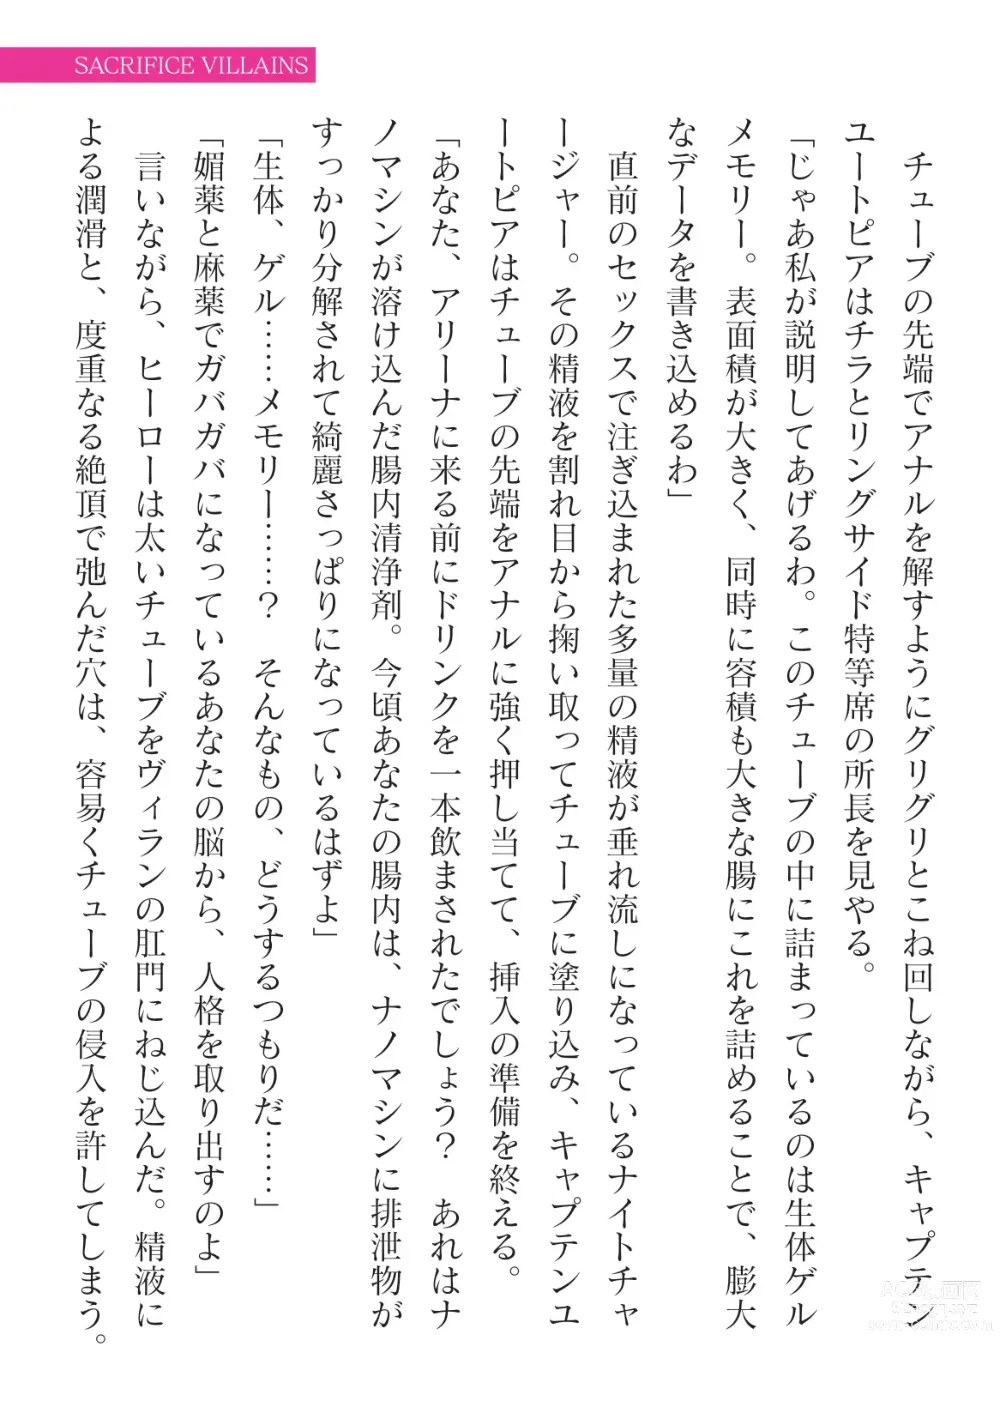 SACRIFICE VILLAINS
　チューブの先端でアナルを解すようにグリグリとこね回しながら、キャプテン
ユートピアはチラとリングサイド特等席の所長を見やる。
「じゃあ私が説明してあげるわ。このチューブの中に詰まっているのは生体ゲル
メモリー。表面積が大きく、同時に容積も大きな腸にこれを詰めることで、膨大
なデータを書き込めるわ」
　直前のセックスで注ぎ込まれた多量の精液が垂れ流しになっているナイトチャ
ージャー。その精液を割れ目から掬い取ってチューブに塗り込み、キャプテンユ
ートピアはチューブの先端をアナルに強く押し当てて、挿入の準備を終える。
「あなた、アリーナに来る前にドリンクを一本飲まされたでしょう？　あれはナ
ノマシンが溶け込んだ腸内清浄剤。今頃あなたの腸内は、ナノマシンに排泄物が
すっかり分解されて綺麗さっぱりになっているはずよ」
「生体、ゲル……メモリー……？　そんなもの、どうするつもりだ……」
「媚薬と麻薬でガバガバになっているあなたの脳から、人格を取り出すのよ」
　言いながら、ヒーローは太いチューブをヴィランの肛門にねじ込んだ。精液に
よる潤滑と、度重なる絶頂で弛んだ穴は、容易くチューブの侵入を許してしまう。